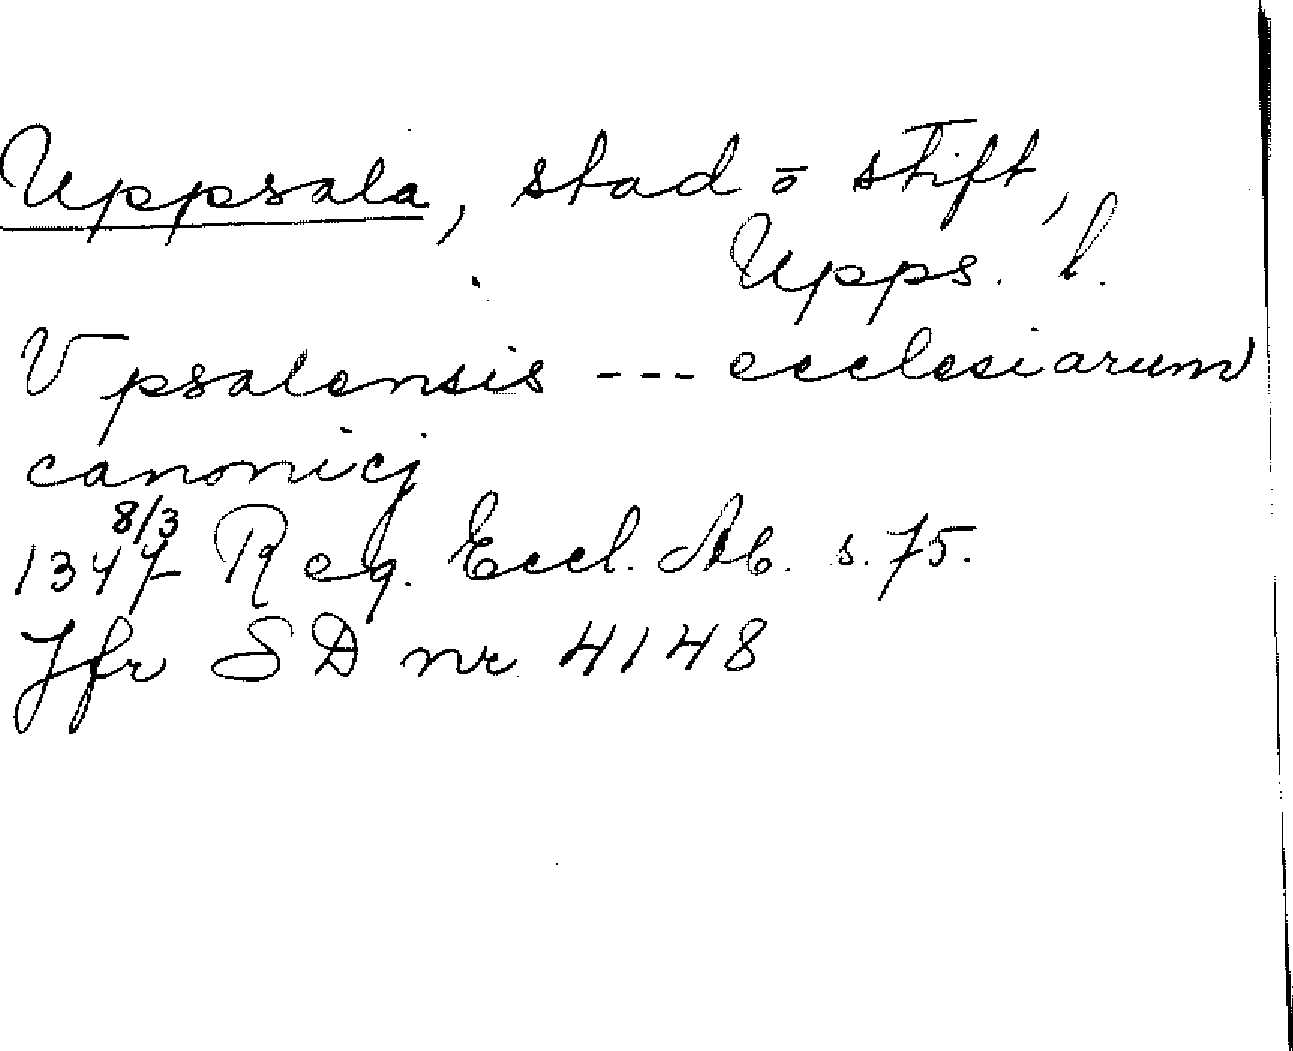 Uppsala, stad o stift,
Upps. l.
Vpsalensis --- ecclesiarum
canonicj
8/3
1347 Reg. Eccl. Ab. s. 75.
Jfr SD nr 4148